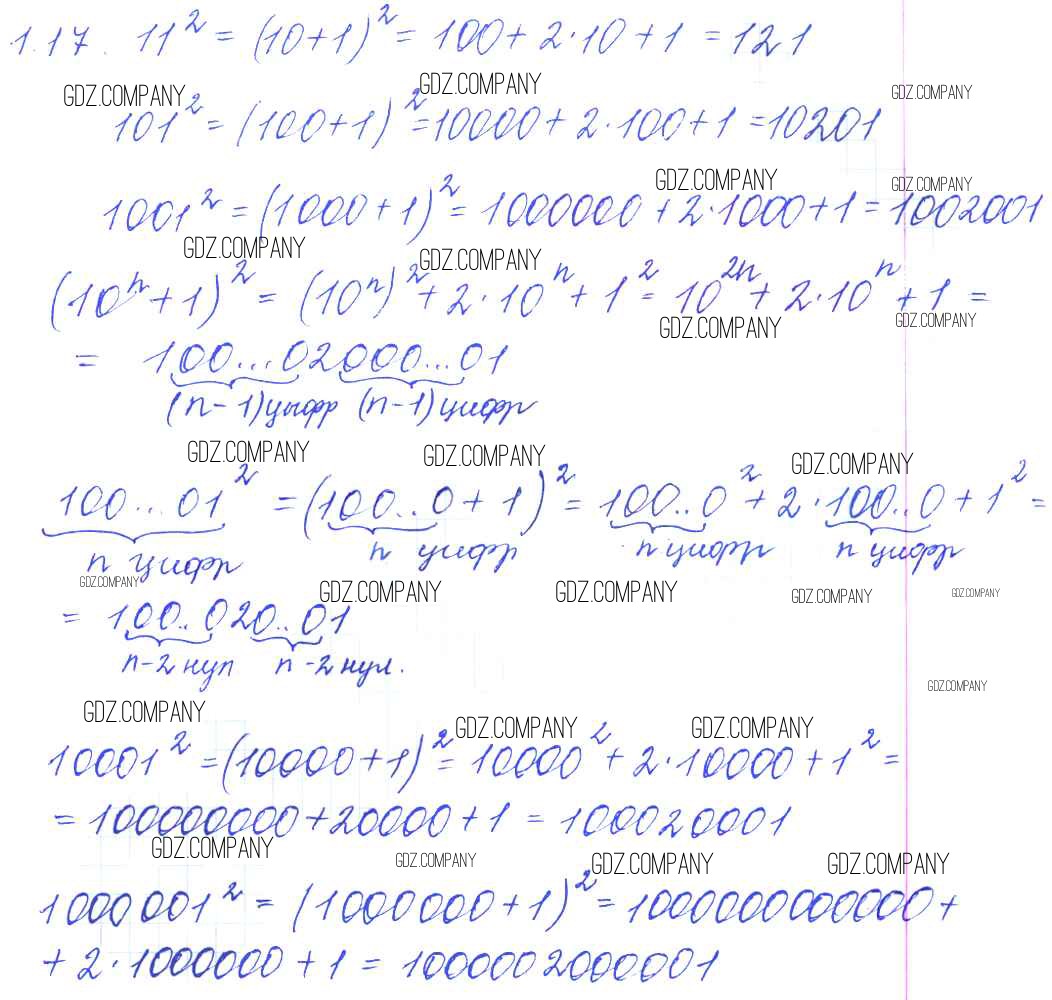 1.17. 11² = (10+1)² = 100 + 2·10 + 1 = 121
GDZ.COMPANY GDZ.COMPANY GDZ.COMPANY
101² = (100+1)² = 10000 + 2·100 + 1 = 10201
GDZ.COMPANY GDZ.COMPANY
1001² = (1000+1)² = 1000000 + 2·1000 + 1 = 1002001
GDZ.COMPANY GDZ.COMPANY
(10ⁿ+1)² = (10ⁿ)² + 2·10ⁿ + 1² = 10²ⁿ + 2·10ⁿ + 1 =
GDZ.COMPANY GDZ.COMPANY
= 100...02000...01
(n-1) цифр (n-1) цифр
GDZ.COMPANY GDZ.COMPANY GDZ.COMPANY
100...01² = (100..0 + 1)² = 100..0² + 2·100..0 + 1² =
n цифр n цифр n цифр n цифр
GDZ.COMPANY GDZ.COMPANY GDZ.COMPANY GDZ.COMPANY GDZ.COMPANY
= 100..020..01
n-2 нул n-2 нул.
GDZ.COMPANY
GDZ.COMPANY GDZ.COMPANY GDZ.COMPANY
10001² = (10000+1)² = 10000² + 2·10000 + 1² =
= 100000000 + 20000 + 1 = 100020001
GDZ.COMPANY GDZ.COMPANY GDZ.COMPANY GDZ.COMPANY
1000001² = (1000000+1)² = 1000000000000 +
+ 2·1000000 + 1 = 1000002000001